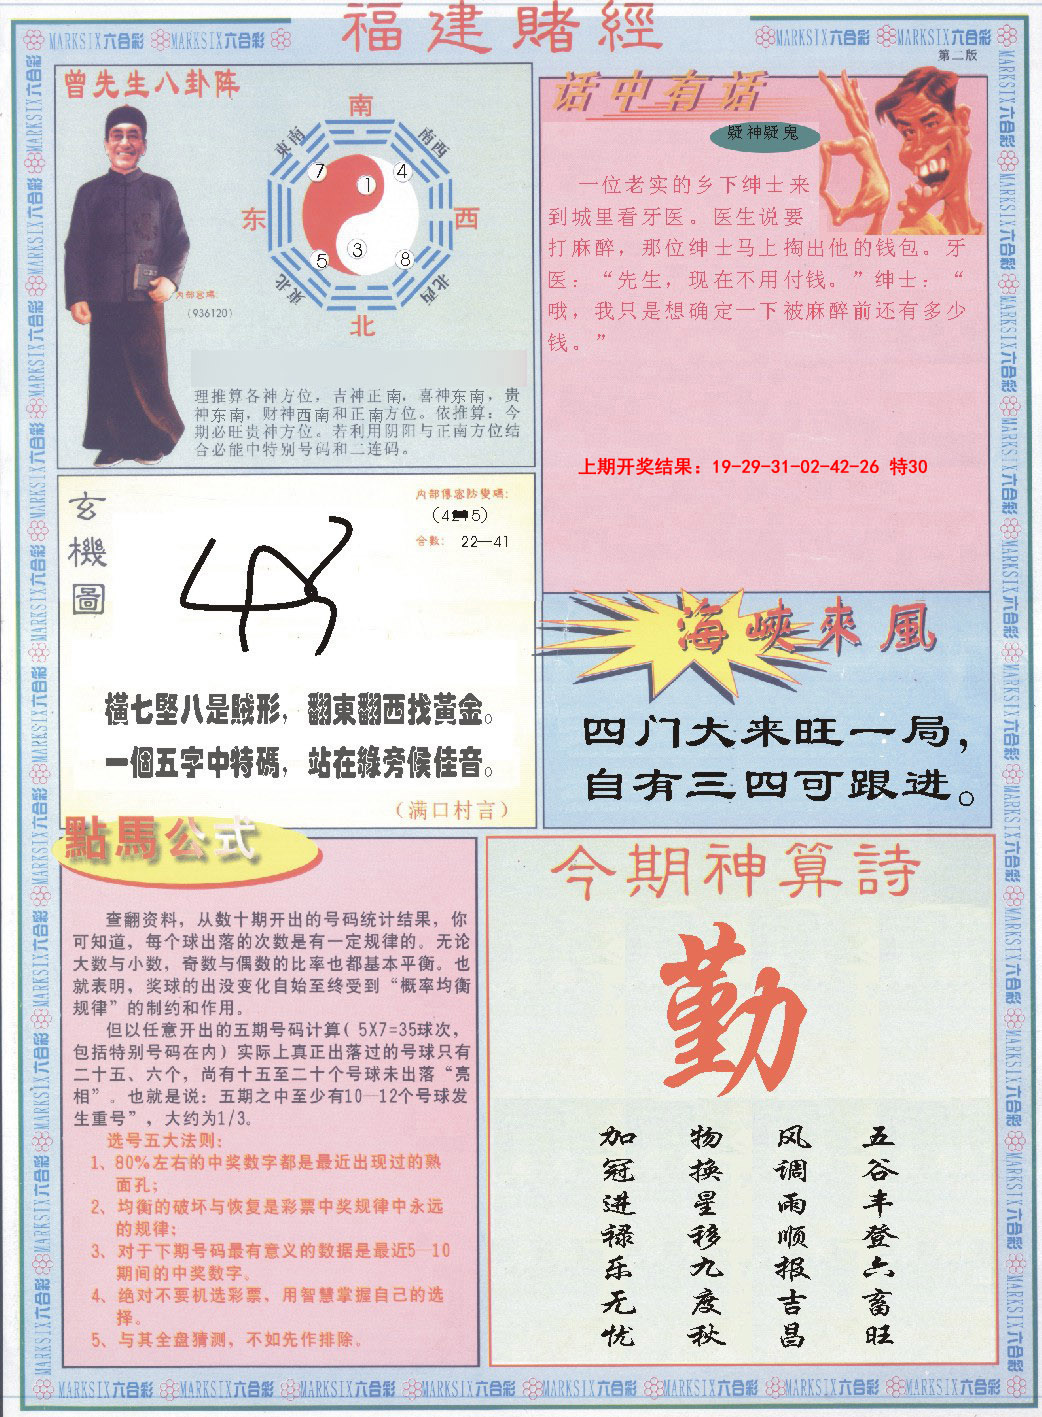 福建賭經
MARKSIX六合彩 MARKSIX六合彩 MARKSIX六合彩 MARKSIX六合彩
第二版
曾先生八卦阵
南
東南 南西
7 4
1
东 西
3
5 8
東北 北西
北
内部密碼:
(936120)
理推算各神方位，吉神正南，喜神东南，贵
神东南，财神西南和正南方位。依推算：今
期必旺贵神方位。若利用阴阳与正南方位结
合必能中特别号码和二连码。
话中有话
疑神疑鬼
一位老实的乡下绅士来
到城里看牙医。医生说要
打麻醉，那位绅士马上掏出他的钱包。牙
医：“先生，现在不用付钱。”绅士：“
哦，我只是想确定一下被麻醉前还有多少
钱。”
上期开奖结果：19-29-31-02-42-26 特30
玄
機
圖
合數: 22—41
橫七堅八是賊形，翻東翻西找黃金。
一個五字中特碼，站在綠旁候佳音。
（满口村言）
海峽來風
四门大来旺一局，
自有三四可跟进。
點馬公式
查翻资料，从数十期开出的号码统计结果，你
可知道，每个球出落的次数是有一定规律的。无论
大数与小数，奇数与偶数的比率也都基本平衡。也
就表明，奖球的出没变化自始至终受到“概率均衡
规律”的制约和作用。
但以任意开出的五期号码计算( 5X7=35球次，
包括特别号码在内）实际上真正出落过的号球只有
二十五、六个，尚有十五至二十个号球未出落“亮
相”。也就是说：五期之中至少有10—12个号球发
生重号”，大约为1/3。
选号五大法则：
1、80%左右的中奖数字都是最近出现过的熟
面孔；
2、均衡的破坏与恢复是彩票中奖规律中永远
的规律；
3、对于下期号码最有意义的数据是最近5—10
期间的中奖数字。
4、绝对不要机选彩票、用智慧掌握自己的选
择。
5、与其全盘猜测，不如先作排除。
今期神算詩
勤
五谷丰登六畜旺
风调雨顺报吉昌
物换星移九度秋
加冠进禄乐无忧
MARKSIX六合彩 MARKSIX六合彩 MARKSIX六合彩 MARKSIX六合彩 MARKSIX六合彩 MARKSIX六合彩 MARKSIX六合彩 MARKSIX六合彩